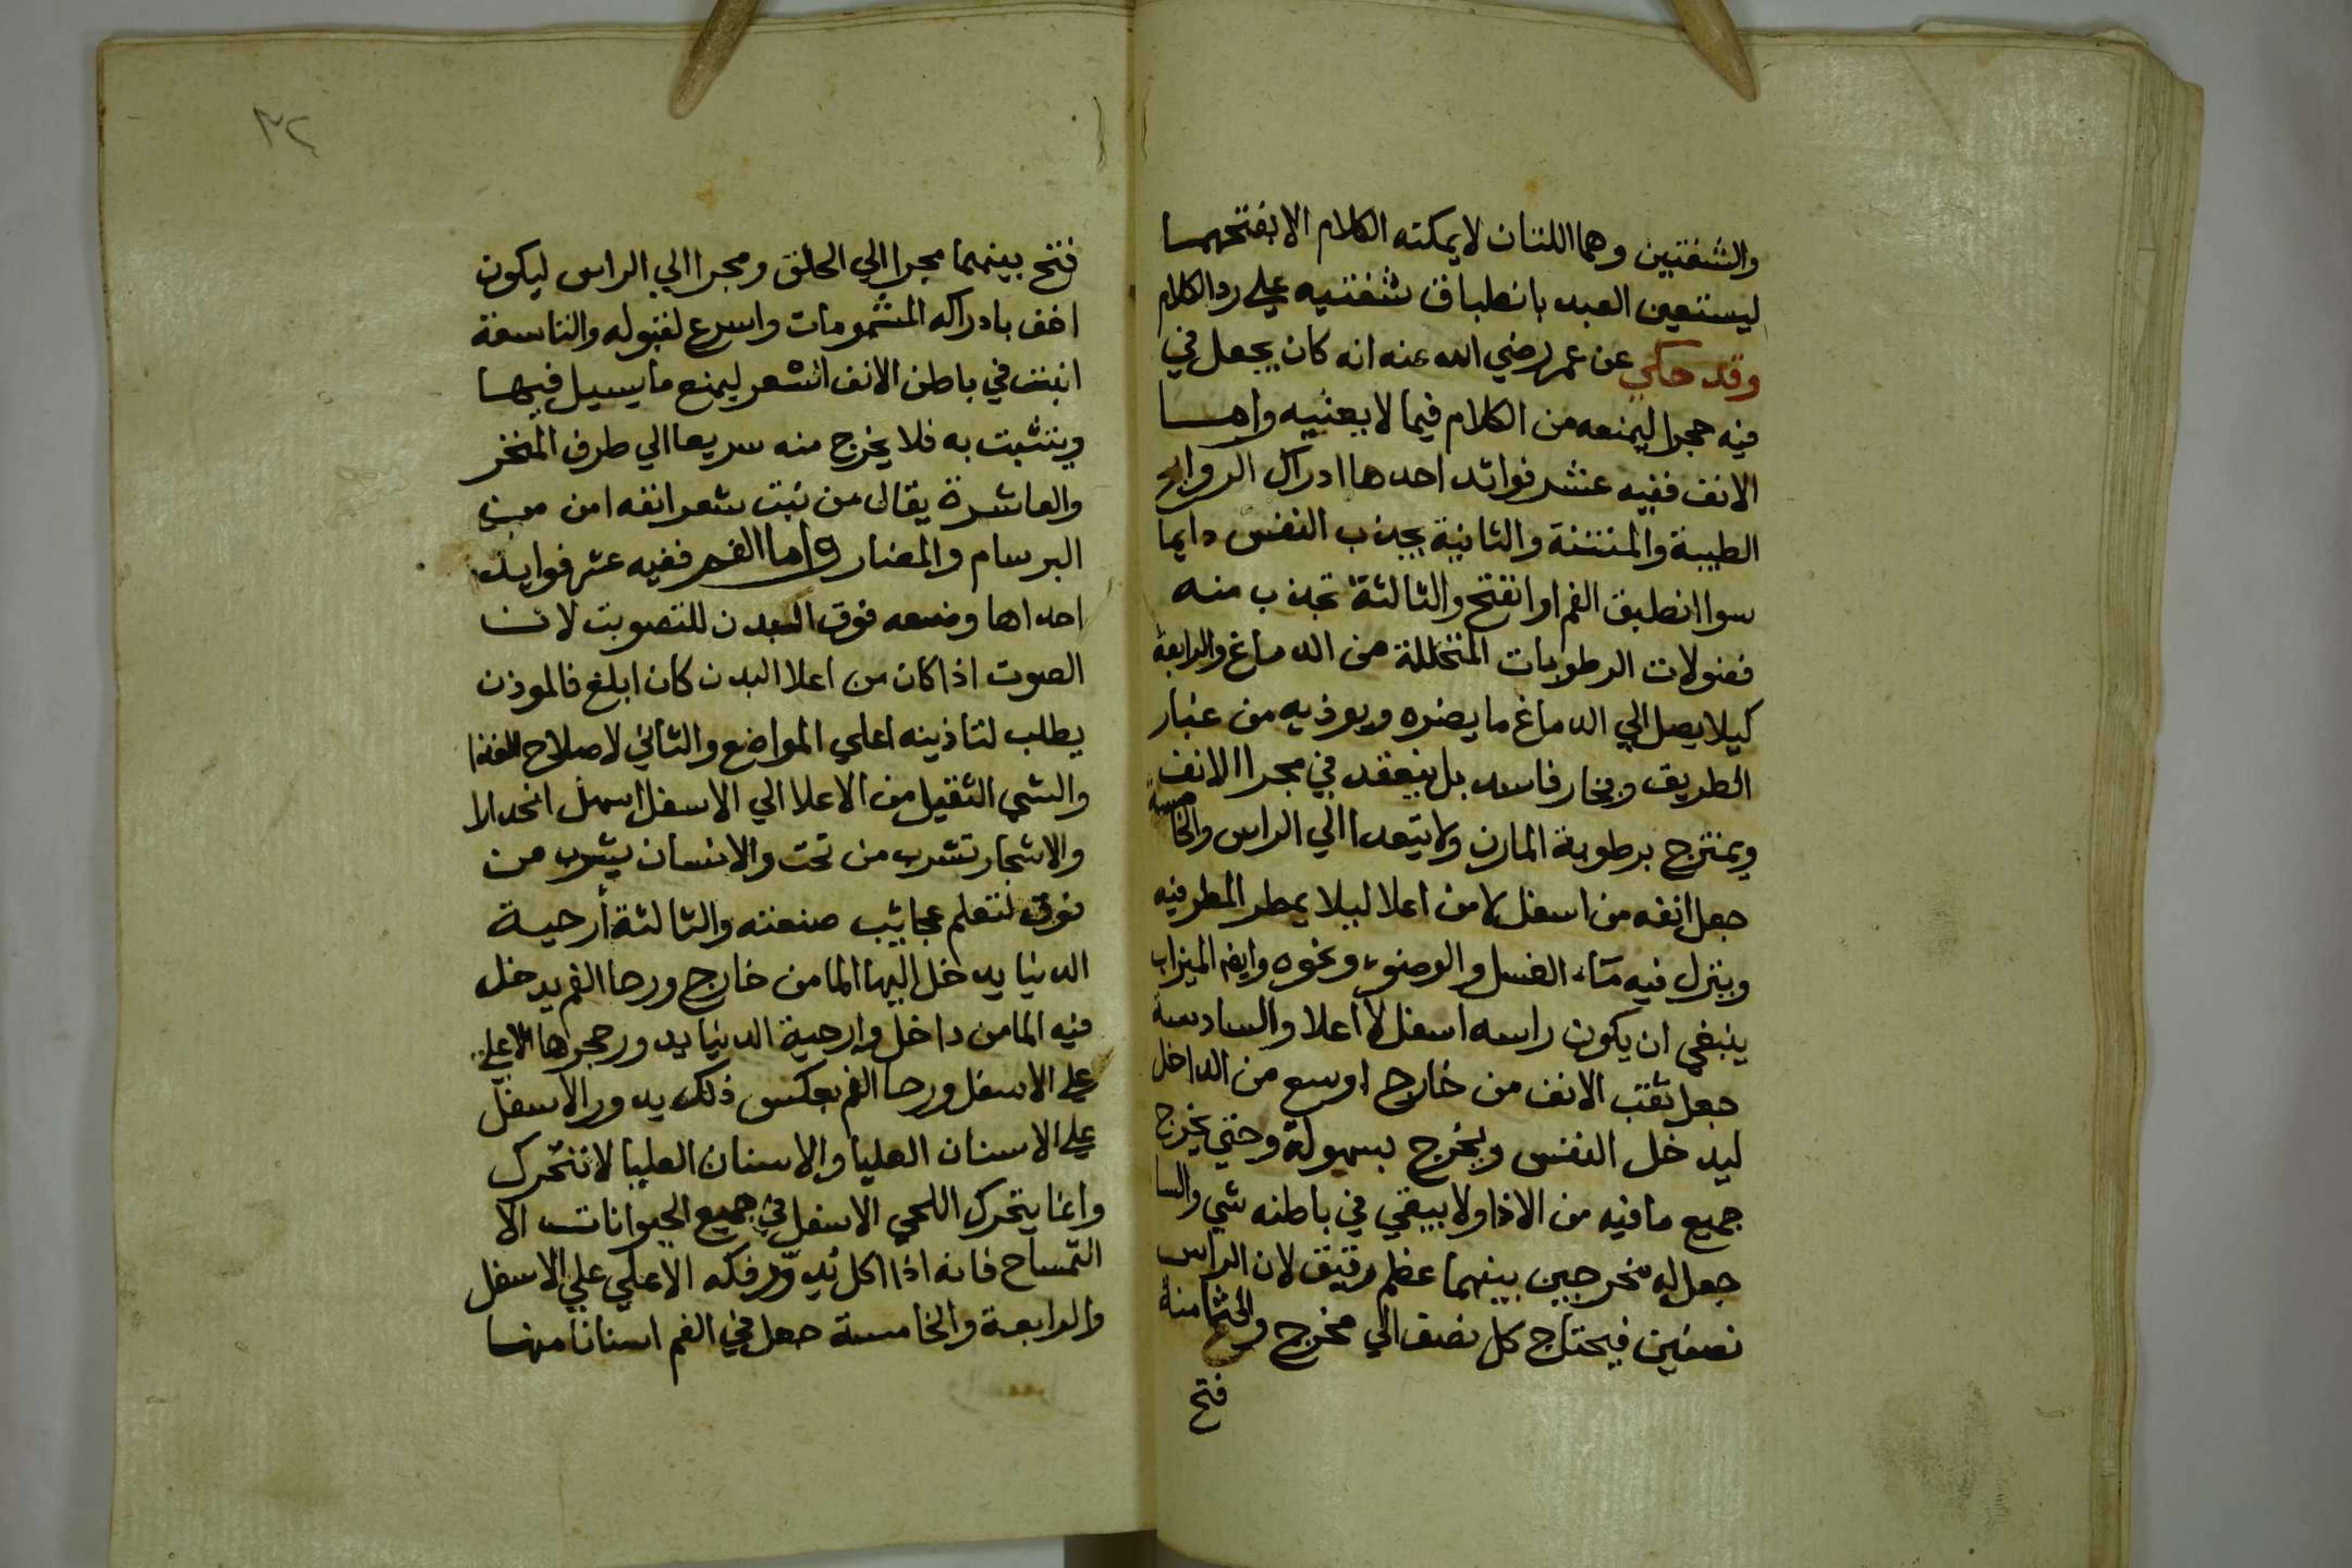 والشفتين وهما اللتان لا يمكنه الكلام الا بفتحهما
ليستعين العبد بانطباق شفتيه علي رد الكلام
وقد حكي عن عمر رضي الله عنه انه كان يجعل في
فيه حجرا ليمنعه من الكلام فيما لا يعنيه واما
الانف ففيه عشر فوائد احدها ادراك الروايح
الطيبة والمنتنة والثانية يجذب النفس دايما
سوا انطبق الفم او انفتح والثالثة تجذب منه
فضولات الرطوبات المتخللة من الدماغ والرابعة
كيلا يصل الي الدماغ ما يضره ويوذيه من غبار
الطريق وبخار فاسد بل ينعقد في مجرا الانف
ويمتزج برطوبة المارن ولا يتعدا الي الراس والخامسة
جعل انفه من اسفل لا من اعلا ليلا يمطر المطر فيه
وينزل فيه ماء الغسل والوضوء ونحوه وايضا الميزاب
ينبغي ان يكون راسه اسفل لا اعلا والسادسة
جعل ثقب الانف من خارج اوسع من الداخل
ليدخل النفس ويخرج بسهولة وحتي يخرج
جميع ما فيه من الاذا ولا يبقي في باطنه شي والسا
جعل له مخرجين بينهما عظم رقيق لان الراس
نصفين فيحتاج كل نصف الي مخرج والثامنة
فتح
٣٢
فتح بينهما مجرا الي الحلق ومجرا الي الراس ليكون
اخف بادراكه المشمومات واسرع لقبوله والتاسعة
انبت في باطن الانف الشعر ليمنع ما يسيل فيها
ويتثبت به فلا يخرج منه سريعا الي طرف المنخر
والعاشرة يقال من نبت شعر انفه امن من
البرسام والمضار واما الفم ففيه عشر فوايد
احداها وضعه فوق البدن للتصويت لان
الصوت اذا كان من اعلا البدن كان ابلغ فالموذن
يطلب لتاذينه اعلي المواضع والثاني لاصلاح الغذا
والشي الثقيل من الاعلا الي الاسفل اسهل انحدارا
والاشجار تشرب من تحت والانسان يشرب من
فوق لتعلم عجائب صنعته والثالثة أرحية
الدنيا يدخل اليها الما من خارج ورحا الفم يدخل
فيه الما من داخل وارحية الدنيا يدور حجرها الاعلي
علي الاسفل ورحا الفم بعكس ذلك يدور الاسفل
علي الاسنان العليا والاسنان العليا لا تتحرك
وانما يتحرك اللحي الاسفل في جميع الحيوانات الا
التمساح فانه اذا اكل يدور فكه الاعلي علي الاسفل
والرابعة والخامسة جعل في الفم اسنانا منها